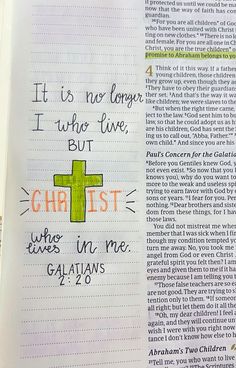 It is no longer
I who live,
BUT
CHRIST
who
lives in me.
GALATIANS
2:20
it protected us until we could be ma
now that the way of faith has com
guardian.
"For you are all children" of God
who have been united with Christ
ting on new clothes." "There is no lo
and female. For you are all one in C
Christ, you are the true children" o
promise to Abraham belongs to yo
4 Think of it this way. If a fathe
young children, those children
they grow up, even though they ac
They have to obey their guardian
ther set. And that's the way it wa
like children; we were slaves to the
But when the right time came,
ject to the law. God sent him to bu
law, so that he could adopt us as h
are his children, God has sent the
ing us to call out, "Abba, Father."
own child." And since you are his
Paul's Concern for the Galatia
Before you Gentiles knew God, y
not even exist. "So now that you k
knows you), why do you want to
more to the weak and useless spi
trying to earn favor with God by
sons or years. I fear for you. Per
nothing. "Dear brothers and siste
dom from these things, for I hav
those laws.
You did not mistreat me when
member that I was sick when I fir
though my condition tempted yo
turn me away. No, you took me
angel from God or even Christ J
grateful spirit you felt then? I am
eyes and given them to me if it ha
enemy because I am telling you th
Those false teachers are so ea
are not good. They are trying to s
tention only to them. "If someor
all right; but let them do it all the
"Oh, my dear children! I feel a
again, and they will continue un
wish I were with you right now
don't know how else to h
Abraham's Two Children
Tell me, you who want to live